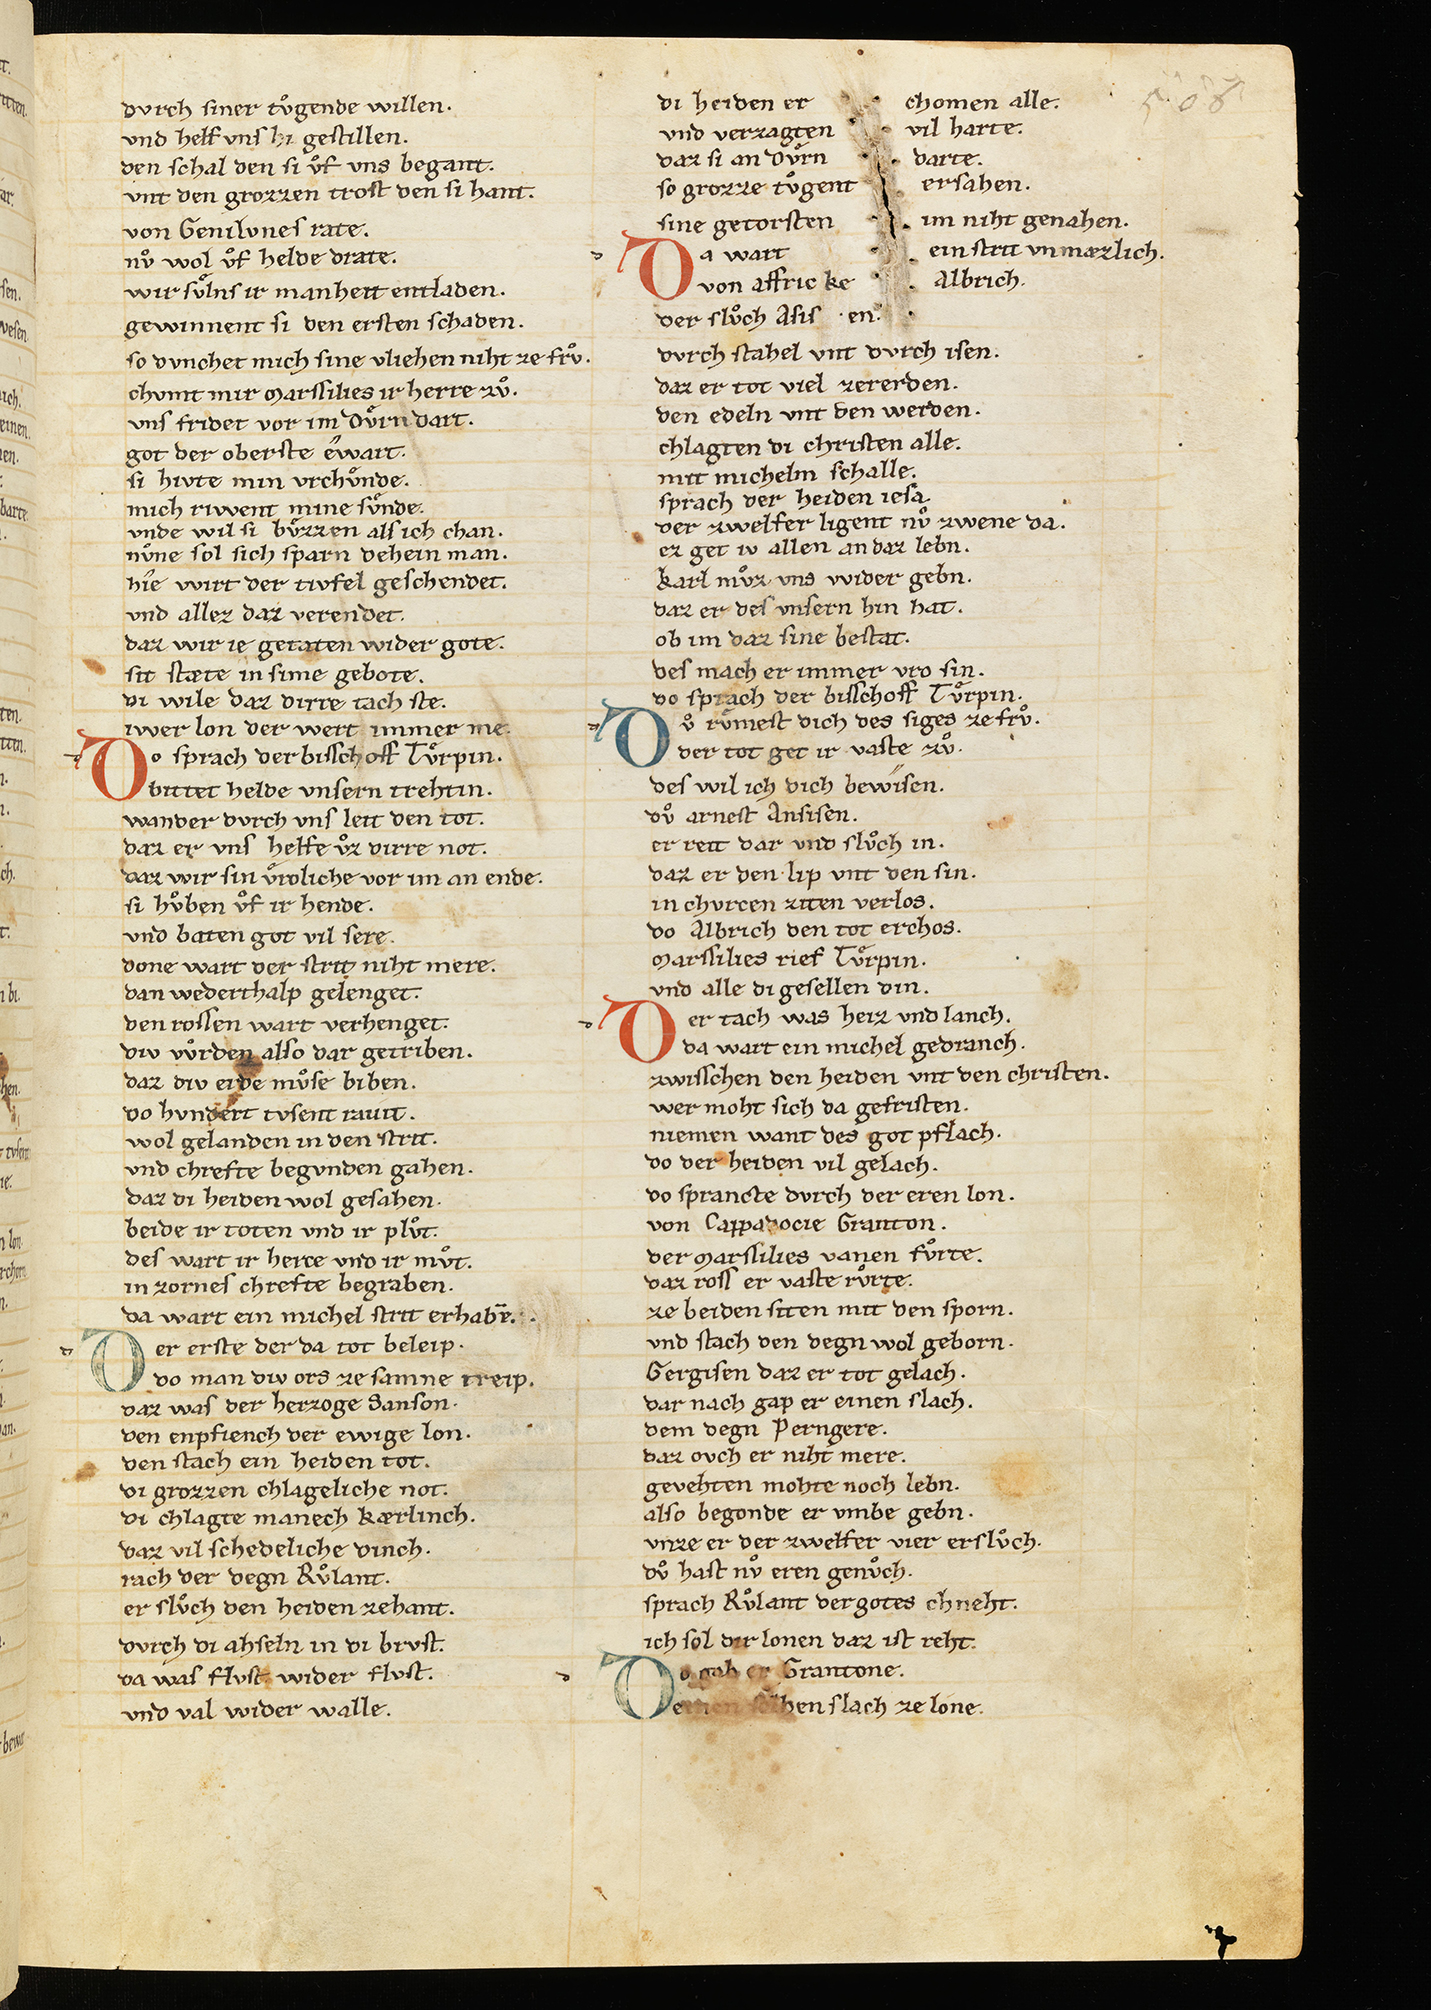 durch siner tůgende willen.
und helf uns hi gestillen.
den schal den si ůf uns begant.
unt den grozzen trost den si hant.
von Genilunes rate.
nů wol ůf helde drate.
wir sůlns ir manheit entladen.
gewinnent si den ersten schaden.
so dunchet mich sine vliehen niht ze frů.
chumt mir Marssilies ir herre zů.
uns fridet vor im Důrndart.
got der oberste êwart.
si hiute min urchůnde.
mich riwent mine sůnde.
unde wil si bůzzen als ich chan.
nůne sol sich sparn dehein man.
hîe wirt der tiufel geschendet.
und allez daz verendet.
daz wir ie getaten wider gote.
sit stæte in sime gebote.
di wile daz dirre tach ste.
iwer lon der wert immer me.
Do sprach der bisschoff Tůrpin.
bittet helde unsern trehtin.
wander durch uns leit den tot.
daz er uns helfe ůz dirre not.
daz wir sin vrôliche vor im an ende.
si hůben ůf ir hende.
und baten got vil sere.
done wart der strit niht mere.
dan wederthalp gelenget.
den rossen wart verhenget.
div vůrden also dar getriben.
daz div erde můse biben.
do hundert tusent ravit.
wol gelanden in den strit.
und chrefte begunden gahen.
daz di heiden wol gesahen.
beide ir toten und ir plůt.
des wart ir herce und ir můt.
in zornes chrefte begraben.
da wart ein michel strit erhabē.
Der erste der da tot beleip.
do man div ors ze samne treip.
daz was der herzoge Sanson.
den enpfiench der ewige lon.
den stach ein heiden tot.
di grozzen chlageliche not.
di chlagte manech Kærlinch.
daz vil schedeliche dinch.
rach der degn Růlant.
er slůch den heiden zehant.
durch di ahseln in di brust.
da was flust wider flust.
und val wider walle.
di heiden er chomen alle.
und verzagten vil harte.
daz si an Důrn darte.
so grozze tůgent ersahen.
sine getorsten im niht genahen.
Da wart ein strit unmæzlich.
von Affric ke Albrich.
der slůch Asis en.
durch stahel unt durch isen.
daz er tot viel zererden.
den edeln unt den werden.
chlagten di christen alle.
mit michelm schalle.
sprach der heiden iesa.
der zwelfer ligent nů zwene da.
ez get iv allen an daz lebn.
Karl můz uns wider gebn.
daz er des unsern hin hat.
ob im daz sine bestat.
des mach er immer vro sin.
do sprach der bisschoff Tůrpin.
Dů růmest dich des siges ze frů.
der tot get ir vaste zů.
des wil ich dich bewisen.
dů arnest Ansisen.
er reit dar und slůch in.
daz er den lip unt den sin.
in churcen ziten verlos.
do Albrich den tot erchos.
Marssilies rief Tůrpin.
und alle di gesellen din.
Der tach was heiz und lanch.
da wart ein michel gedranch.
zwisschen den heiden unt den christen.
wer moht sich da gefristen.
niemen want des got pflach.
do der heiden vil gelach.
do sprancte durch der eren lon.
von Cappadocie Granton.
der Marssilies vanen fůrte.
daz ross er vaste růrte.
ze beiden siten mit den sporn.
und stach den degn wol geborn.
Gergisen daz er tot gelach.
dar nach gap er einen slach.
dem degn Perngere.
daz ouch er niht mere.
gevehten mohte noch lebn.
also begonde er umbe gebn.
unze er der zwelfer vier erslůch.
dů hast nů eren genůch.
sprach Růlant der gotes chneht.
ich sol dir lonen daz ist reht.
Do gab er Grantone.
einen solhen slach ze lone.